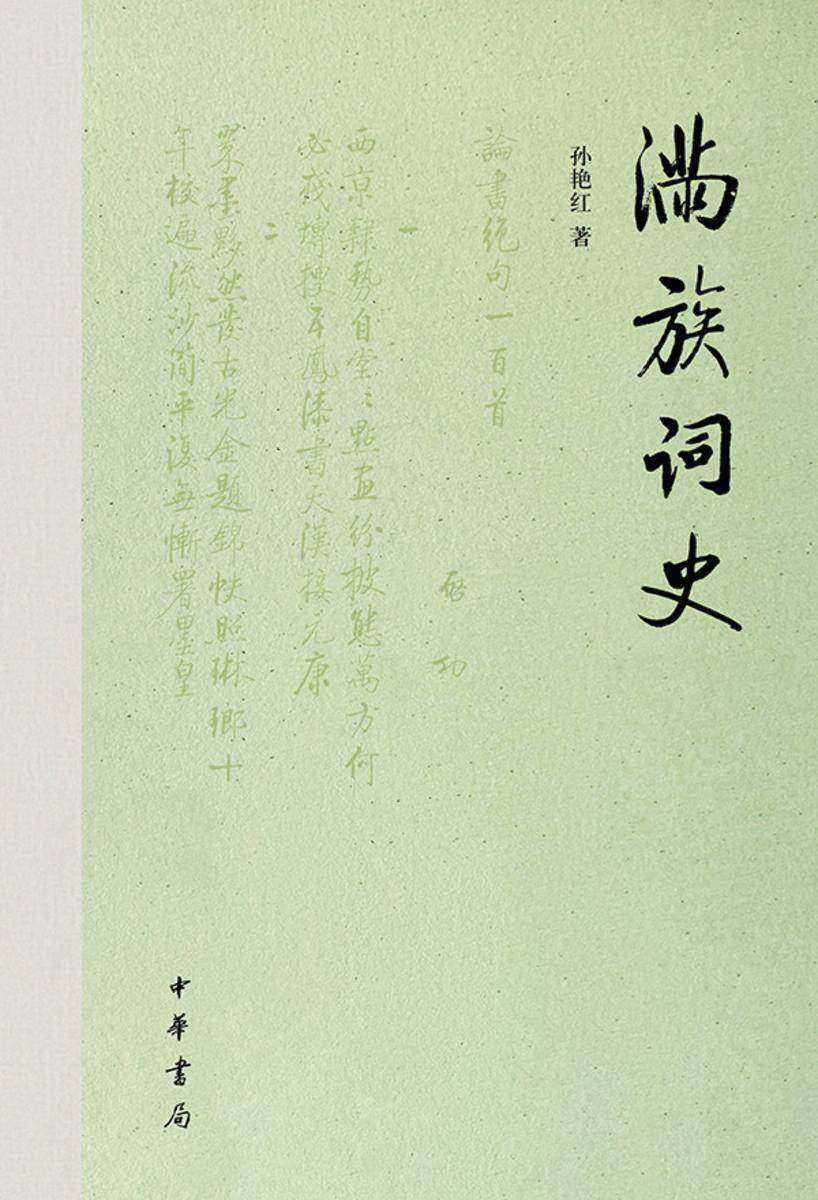 满族词史
孙艳红 著
論書絕句一百首
啓功
一
西京隸勢自堂〻點畫紛披態萬方何
必殘塼搜五鳳漆書天漢接元康
二
翠墨黟然發古光金題錦帙照琳瑯十
年校遍流沙简平復無慚署墨皇
中華書局